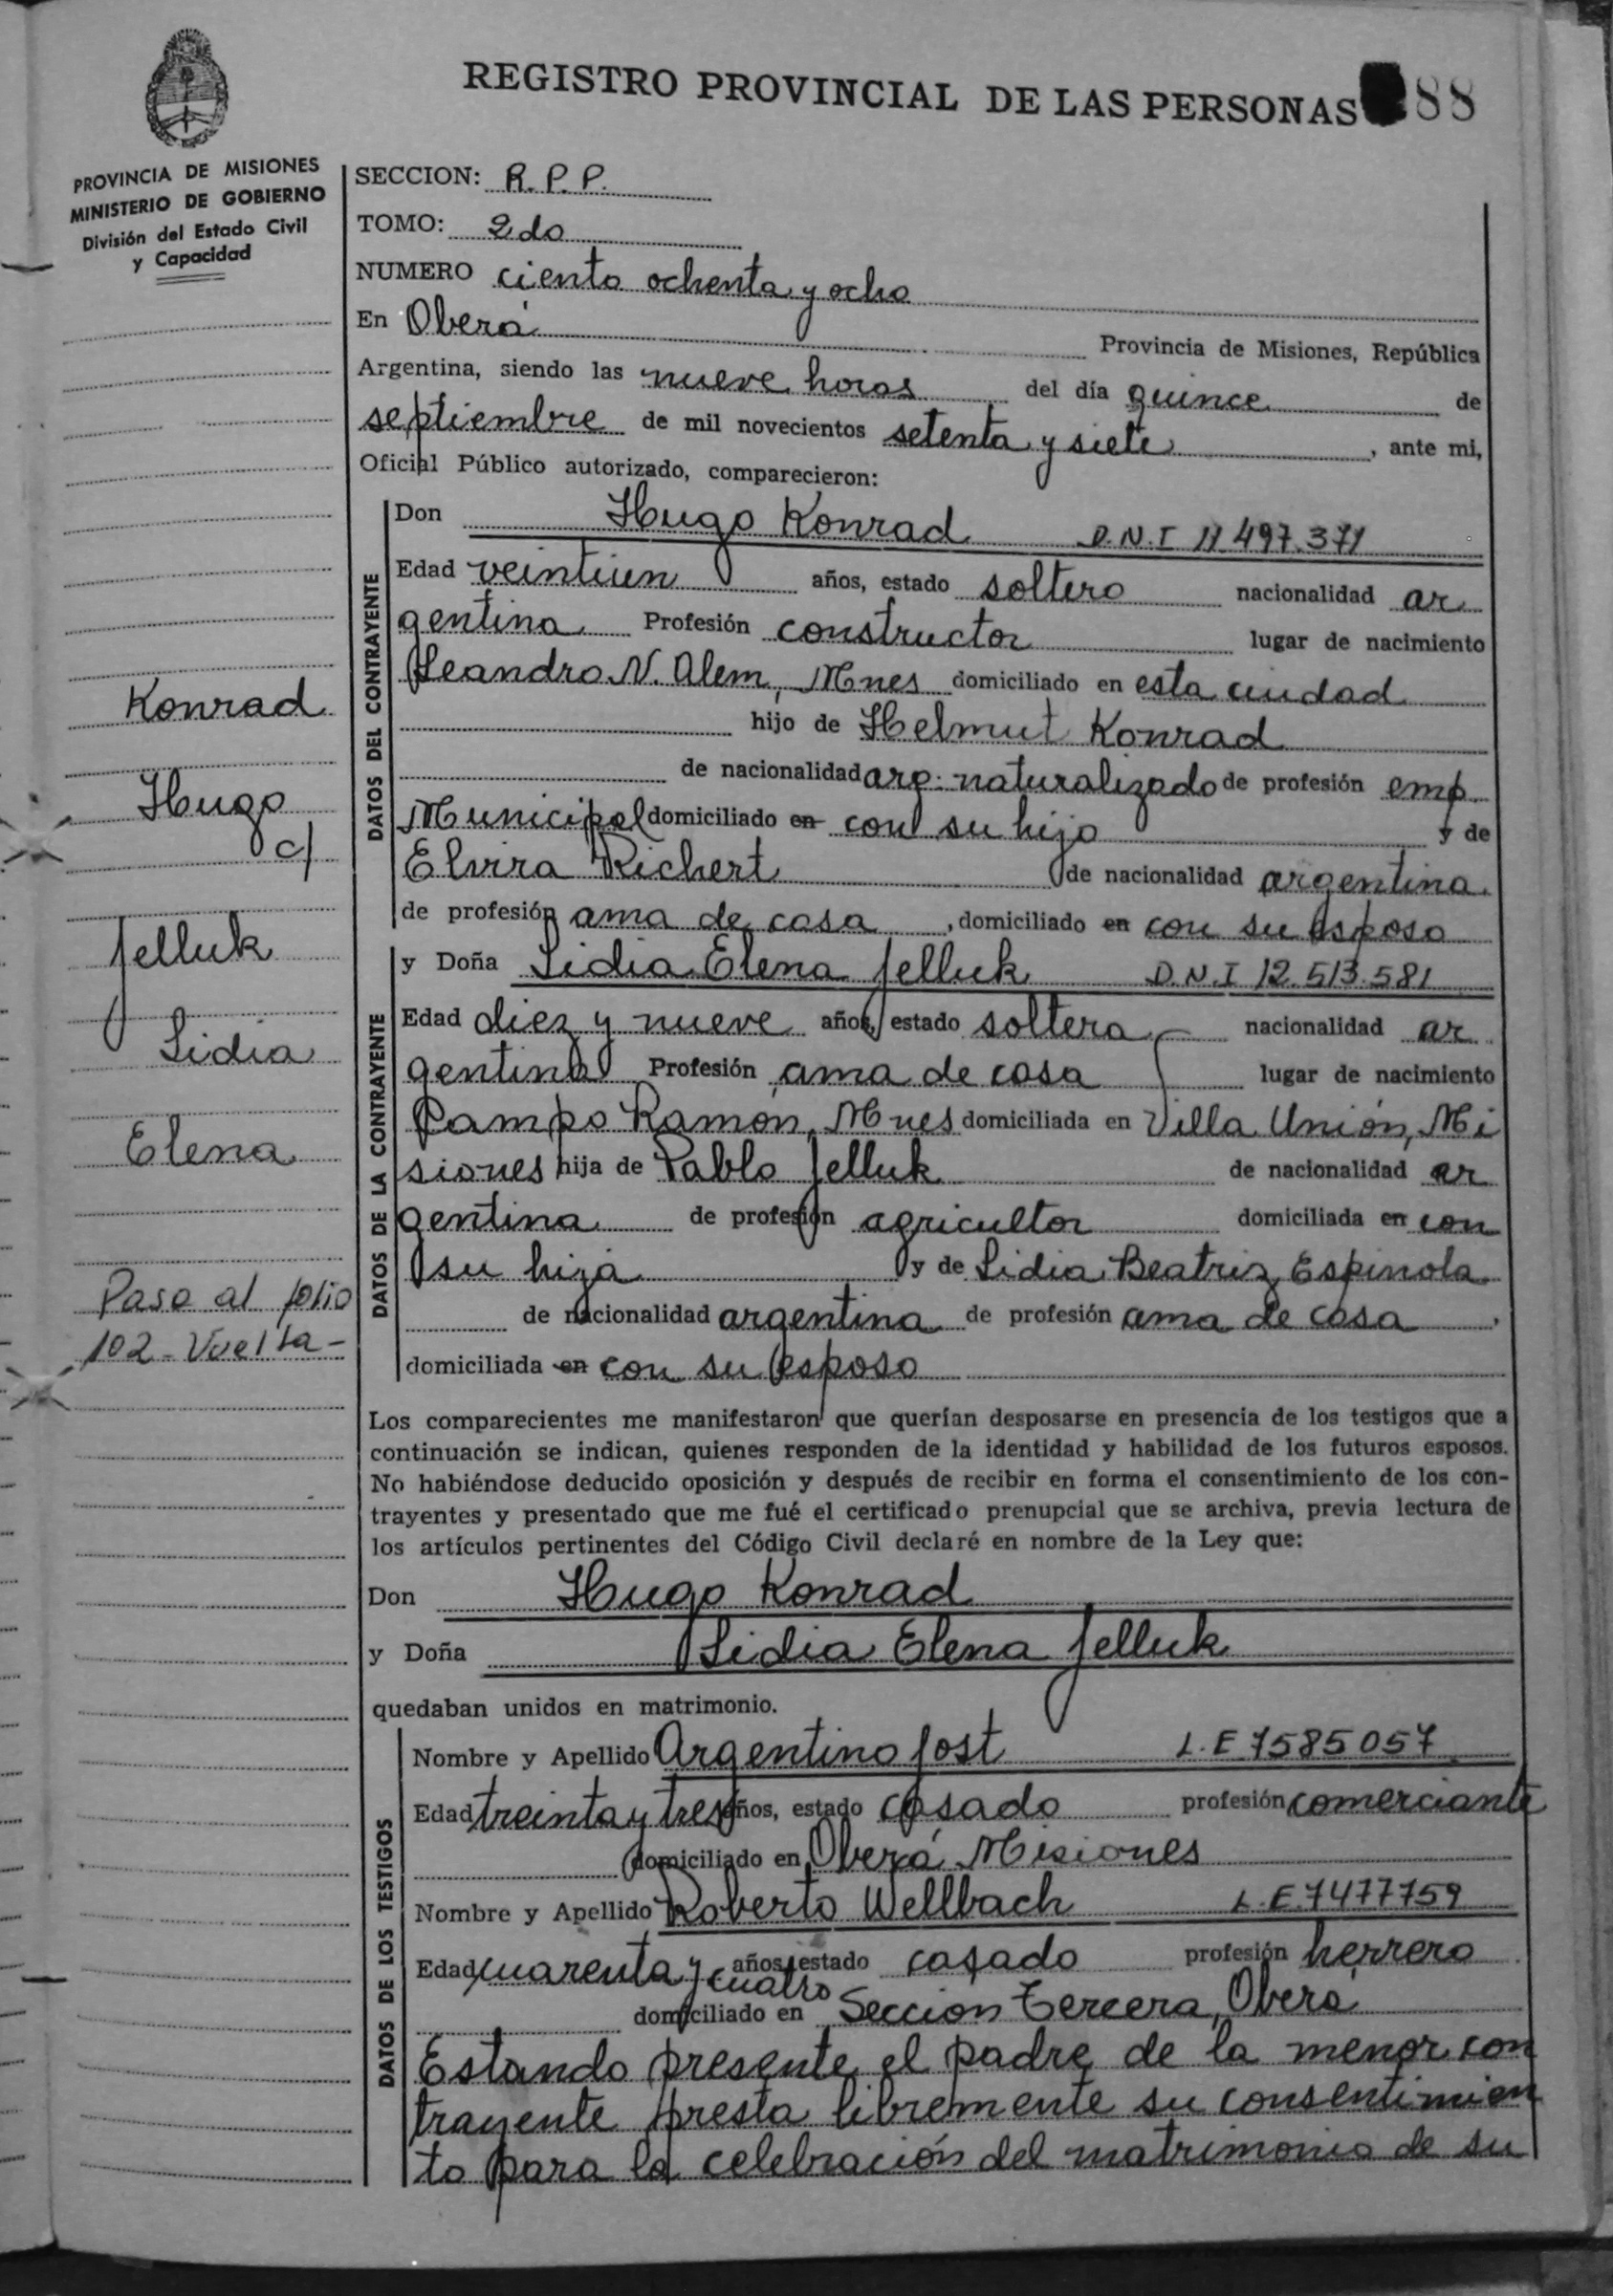 REGISTRO PROVINCIAL DE LAS PERSONAS 88
PROVINCIA DE MISIONES
MINISTERIO DE GOBIERNO
División del Estado Civil
y Capacidad
SECCION: R.P.P.
TOMO: 2do
NUMERO ciento ochenta y ocho
En Oberá Provincia de Misiones, República
Argentina, siendo las nueve horas del día quince de
septiembre de mil novecientos setenta y siete, ante mi,
Oficial Público autorizado, comparecieron:
DATOS DEL CONTRAYENTE
Don Hugo Konrad D.N.I 11.497.371
Edad veintiun años, estado soltero nacionalidad ar
gentina Profesión constructor lugar de nacimiento
Leandro N. Alem, Mnes domiciliado en esta ciudad
hijo de Helmut Konrad
de nacionalidad arg. naturalizado de profesión emp.
Municipal domiciliado en con su hijo y de
Elvira Richert de nacionalidad argentina
de profesión ama de casa, domiciliado en con su esposo
DATOS DE LA CONTRAYENTE
y Doña Lidia Elena Jelluk D.N.I 12.513.581
Edad diez y nueve años, estado soltera nacionalidad ar
gentina Profesión ama de casa lugar de nacimiento
Campo Ramón, Mnes domiciliada en Villa Unión, Mi
siones hija de Pablo Jelluk de nacionalidad ar
gentina de profesión agricultor domiciliada en con
su hija y de Lidia Beatriz Espinola
de nacionalidad argentina de profesión ama de casa,
domiciliada en con su esposo
Konrad
Hugo
c/
Jelluk
Lidia
Elena
Pasa al folio
102 - Vuelta -
Los comparecientes me manifestaron que querían desposarse en presencia de los testigos que a
continuación se indican, quienes responden de la identidad y habilidad de los futuros esposos.
No habiéndose deducido oposición y después de recibir en forma el consentimiento de los con-
trayentes y presentado que me fué el certificado prenupcial que se archiva, previa lectura de
los artículos pertinentes del Código Civil declaré en nombre de la Ley que:
Don Hugo Konrad
y Doña Lidia Elena Jelluk
quedaban unidos en matrimonio.
DATOS DE LOS TESTIGOS
Nombre y Apellido Argentino Jost L.E 7585057
Edad treinta y tres años, estado casado profesión comerciante
domiciliado en Oberá Misiones
Nombre y Apellido Roberto Wellbach L.E. 7477759
Edad cuarenta y cuatro años, estado casado profesión herrero
domiciliado en Sección Tercera, Oberá
Estando presente el padre de la menor con
trayente presta libremente su consentimien
to para la celebración del matrimonio de su